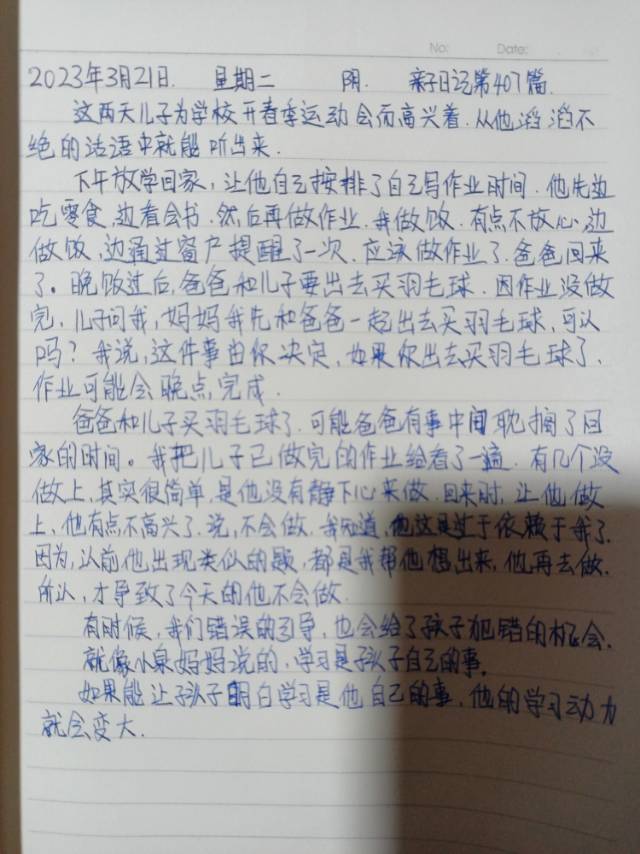 No: Date:
2023年3月21日. 星期二 阴. 亲子日记第407篇.
这两天儿子为学校开春季运动会而高兴着.从他滔滔不
绝的话语中就能听出来.
下午放学回家,让他自己按排了自己写作业时间.他先边
吃零食,边看会书.然后再做作业.我做饭.有点不放心,边
做饭,边通过窗户提醒了一次.应该做作业了.爸爸回来
了。晚饭过后,爸爸和儿子要出去买羽毛球.因作业没做
完,儿子问我,妈妈我先和爸爸一起出去买羽毛球,可以
吗?我说,这件事由你决定,如果你出去买羽毛球了.
作业可能会晚点完成.
爸爸和儿子买羽毛球了.可能爸爸有事中间耽搁了回
家的时间。我把儿子已做完的作业给看了一遍.有几个没
做上,其实很简单,是他没有静下心来做.回来时,让他做
上,他有点不高兴了.说,不会做.我知道,他这是过于依赖于我了.
因为,以前他出现类似的题,都是我帮他想出来,他再去做.
所以,才导致了今天的他不会做.
有时候,我们错误的引导,也会给了孩子犯错的机会.
就像小泉妈妈说的,学习是孩子自己的事.
如果能让孩子明白学习是他自己的事,他的学习动力
就会变大.